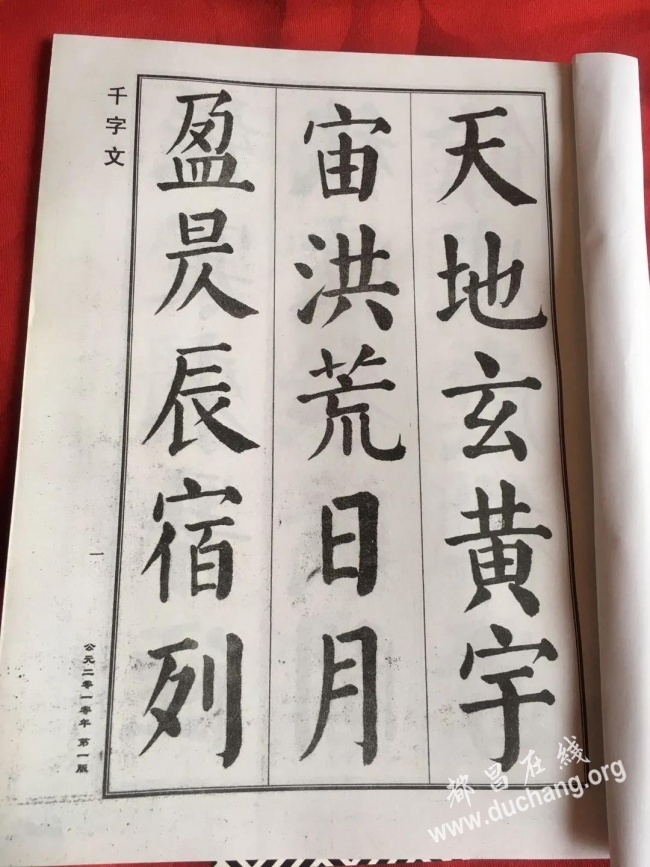 天地玄黄宇
宙洪荒日月
盈昃辰宿列
千字文
一
公元二零一零年 第一版
都昌在线
www.duchang.org